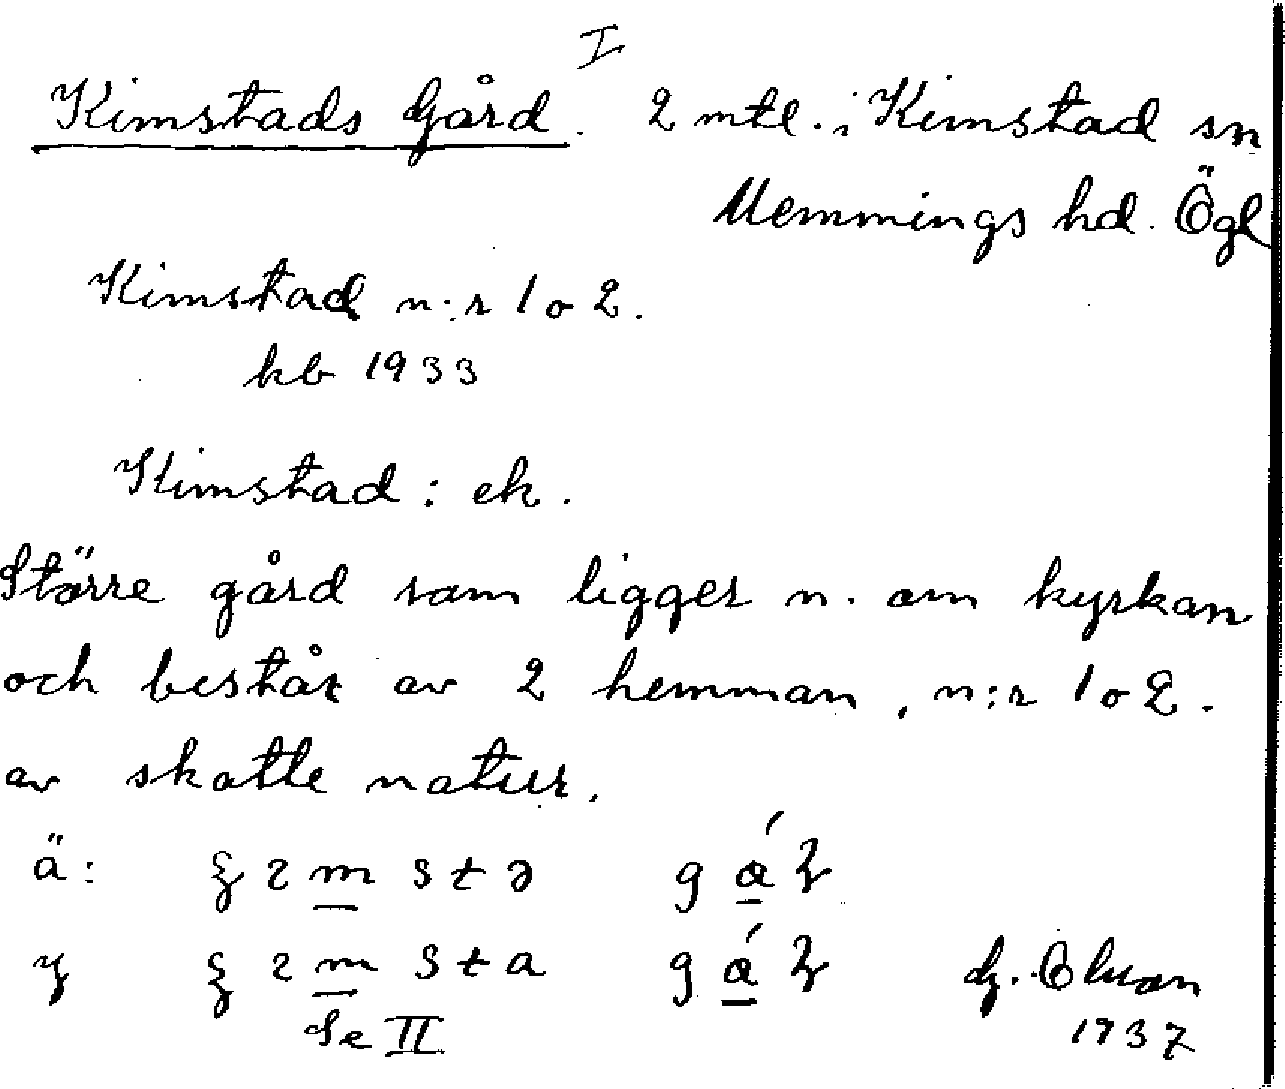 I
Kimstads Gård. 2 mtl. i Kimstad sn
Memmings hd. Ögl
Kimstad n:r 1 o 2.
kb 1933
Kimstad: ek.
Större gård som ligger n. om kyrkan
och består av 2 hemman, n:r 1 o 2.
av skatte natur.
ä:
y
Se II
1937